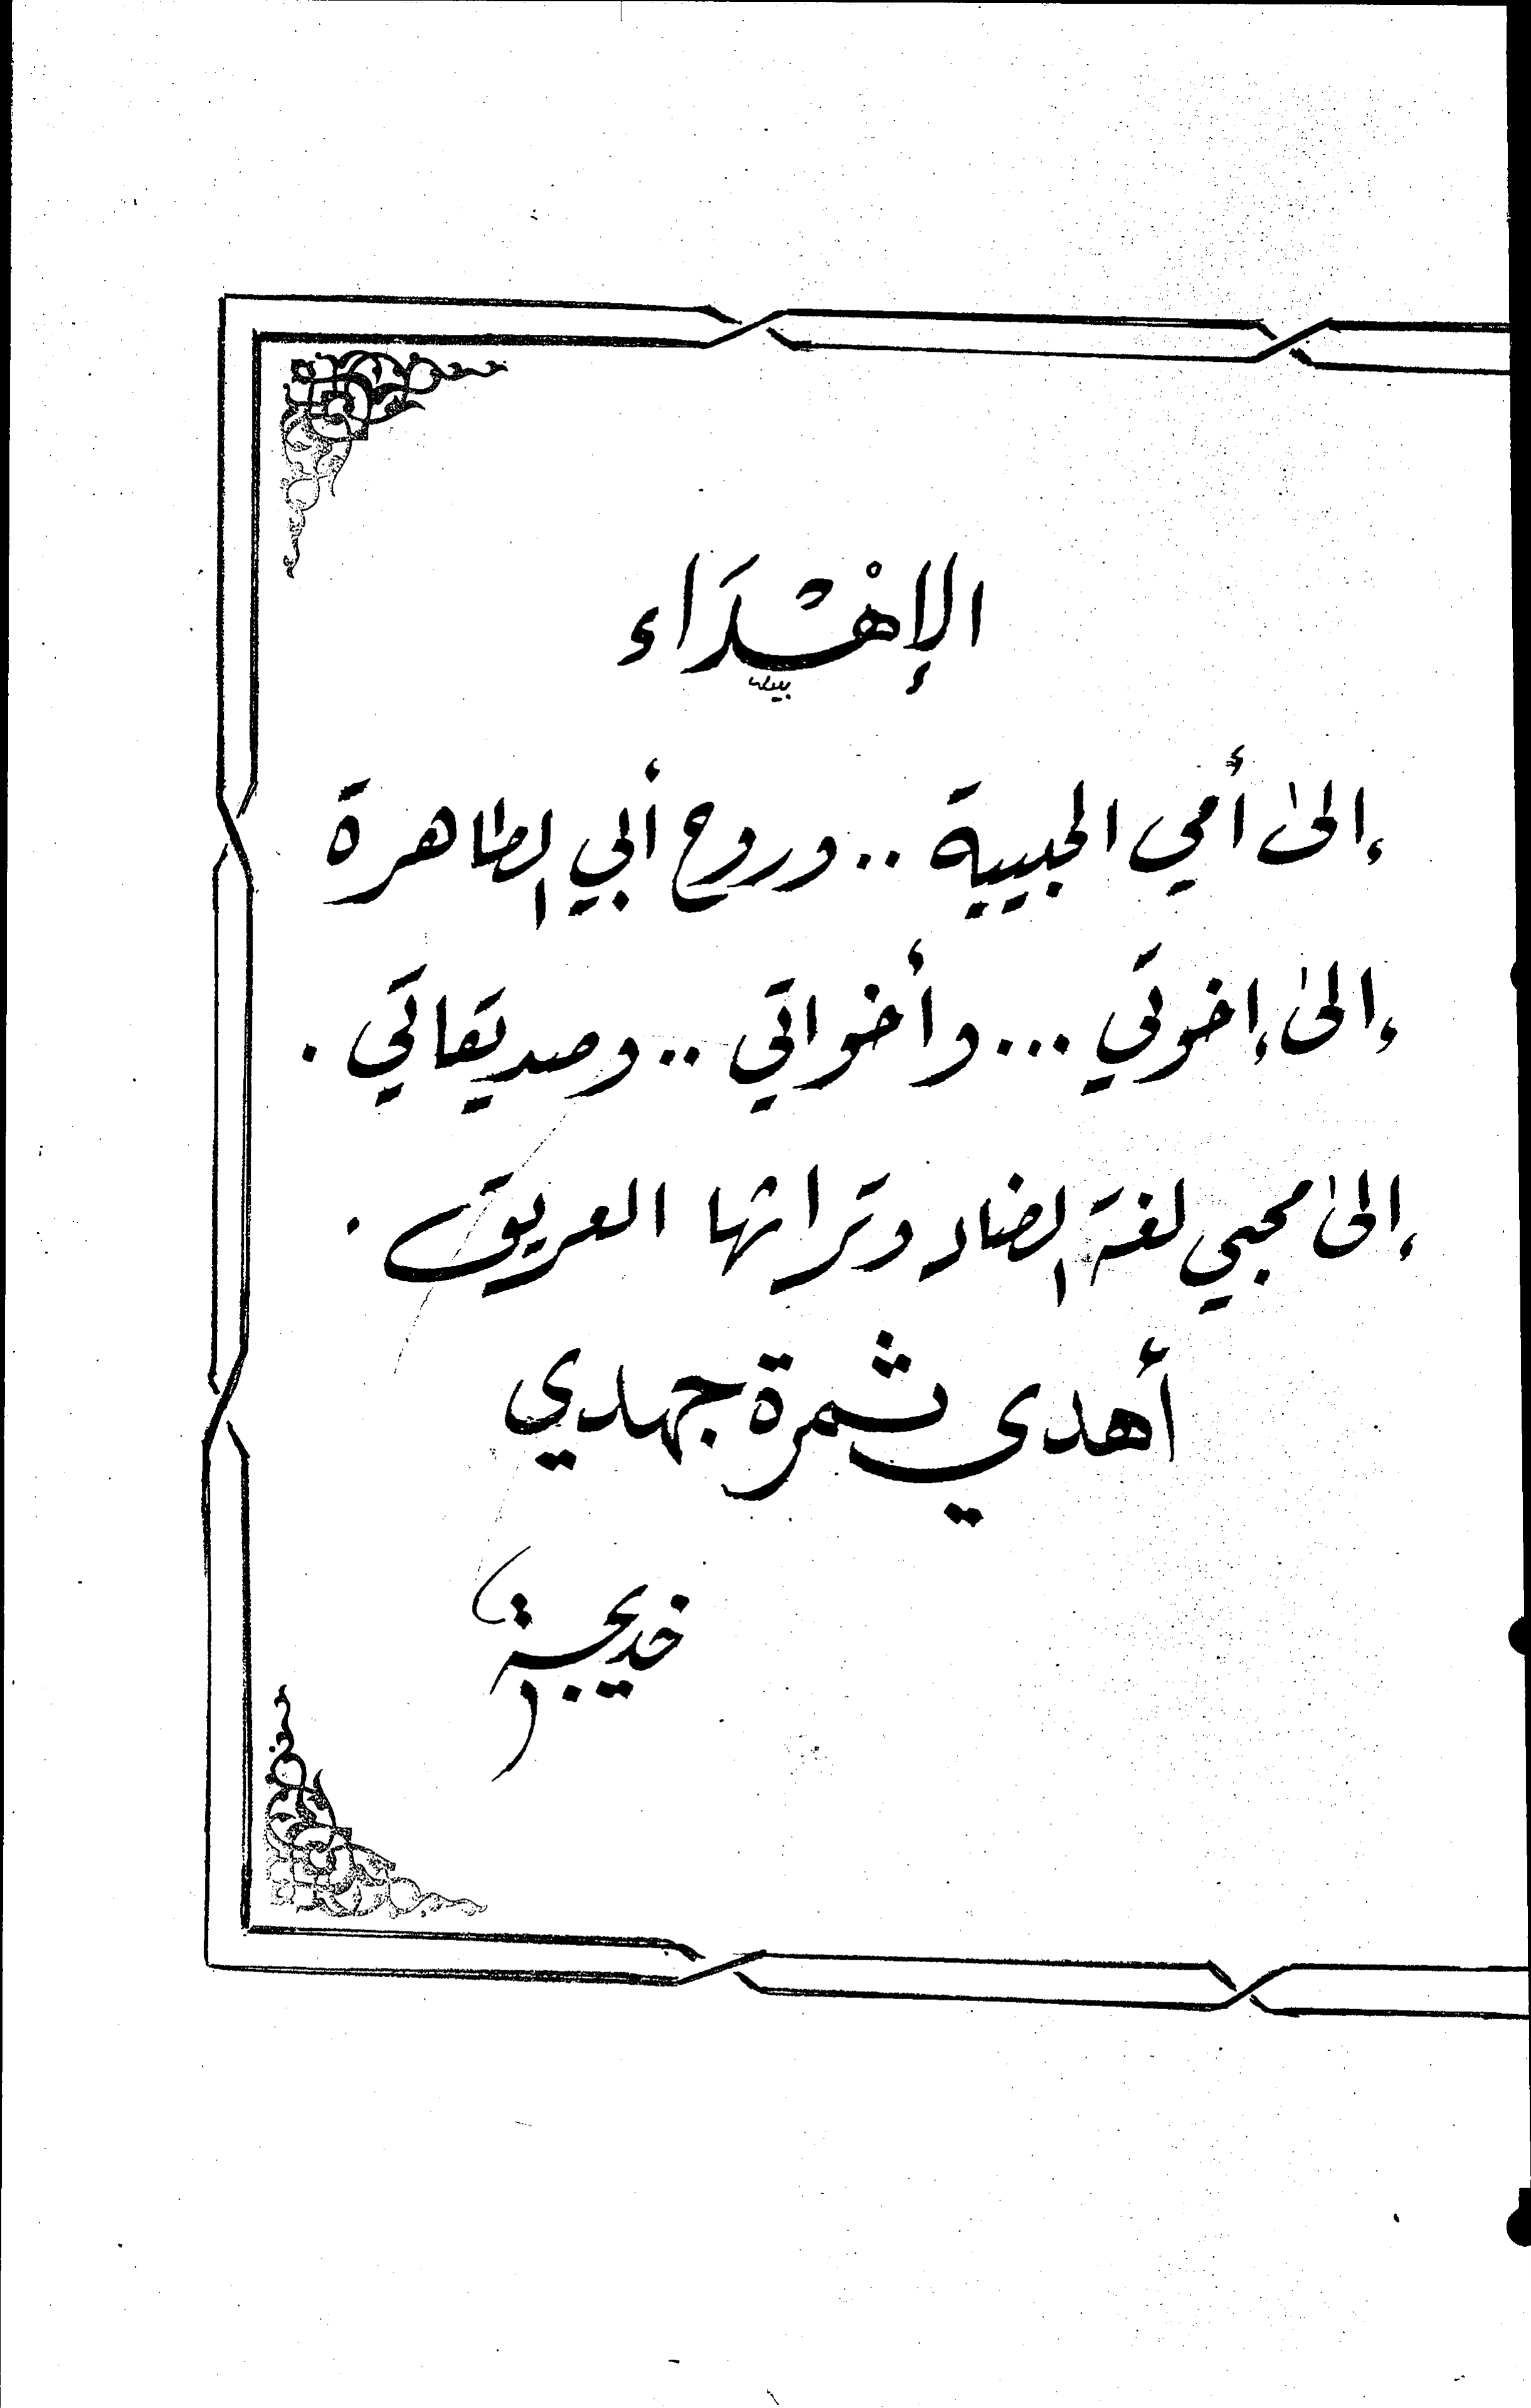 الإهْدَاء
إلىٰ أمي الحبيبة .. وروح أبي الطاهرة
إلىٰ إخوتي ... وأخواتي .. وصديقاتي .
إلىٰ محبي لغة الضاد وتراثها العريق .
أهدي ثمرة جهدي
خديجة